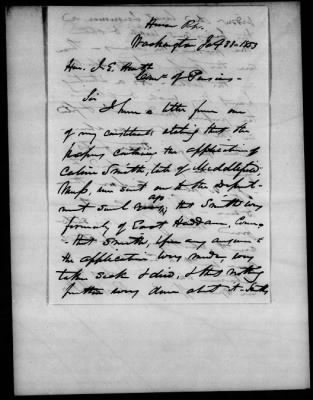 House Rps.
Washington July 31 1853
Hon. J. E. Heath
Comr of Pensions
Sir
I have a letter from one
of my constituents stating that the
papers containing the application of
Calvin Smith, late of Middlefield,
Mass, were sent on to the Depart-
ment some ago, that Smith was
formerly of East Haddam, Conn
that Smith, before any answer to
the application was made, was
taken sick & died, & that nothing
further was done about it